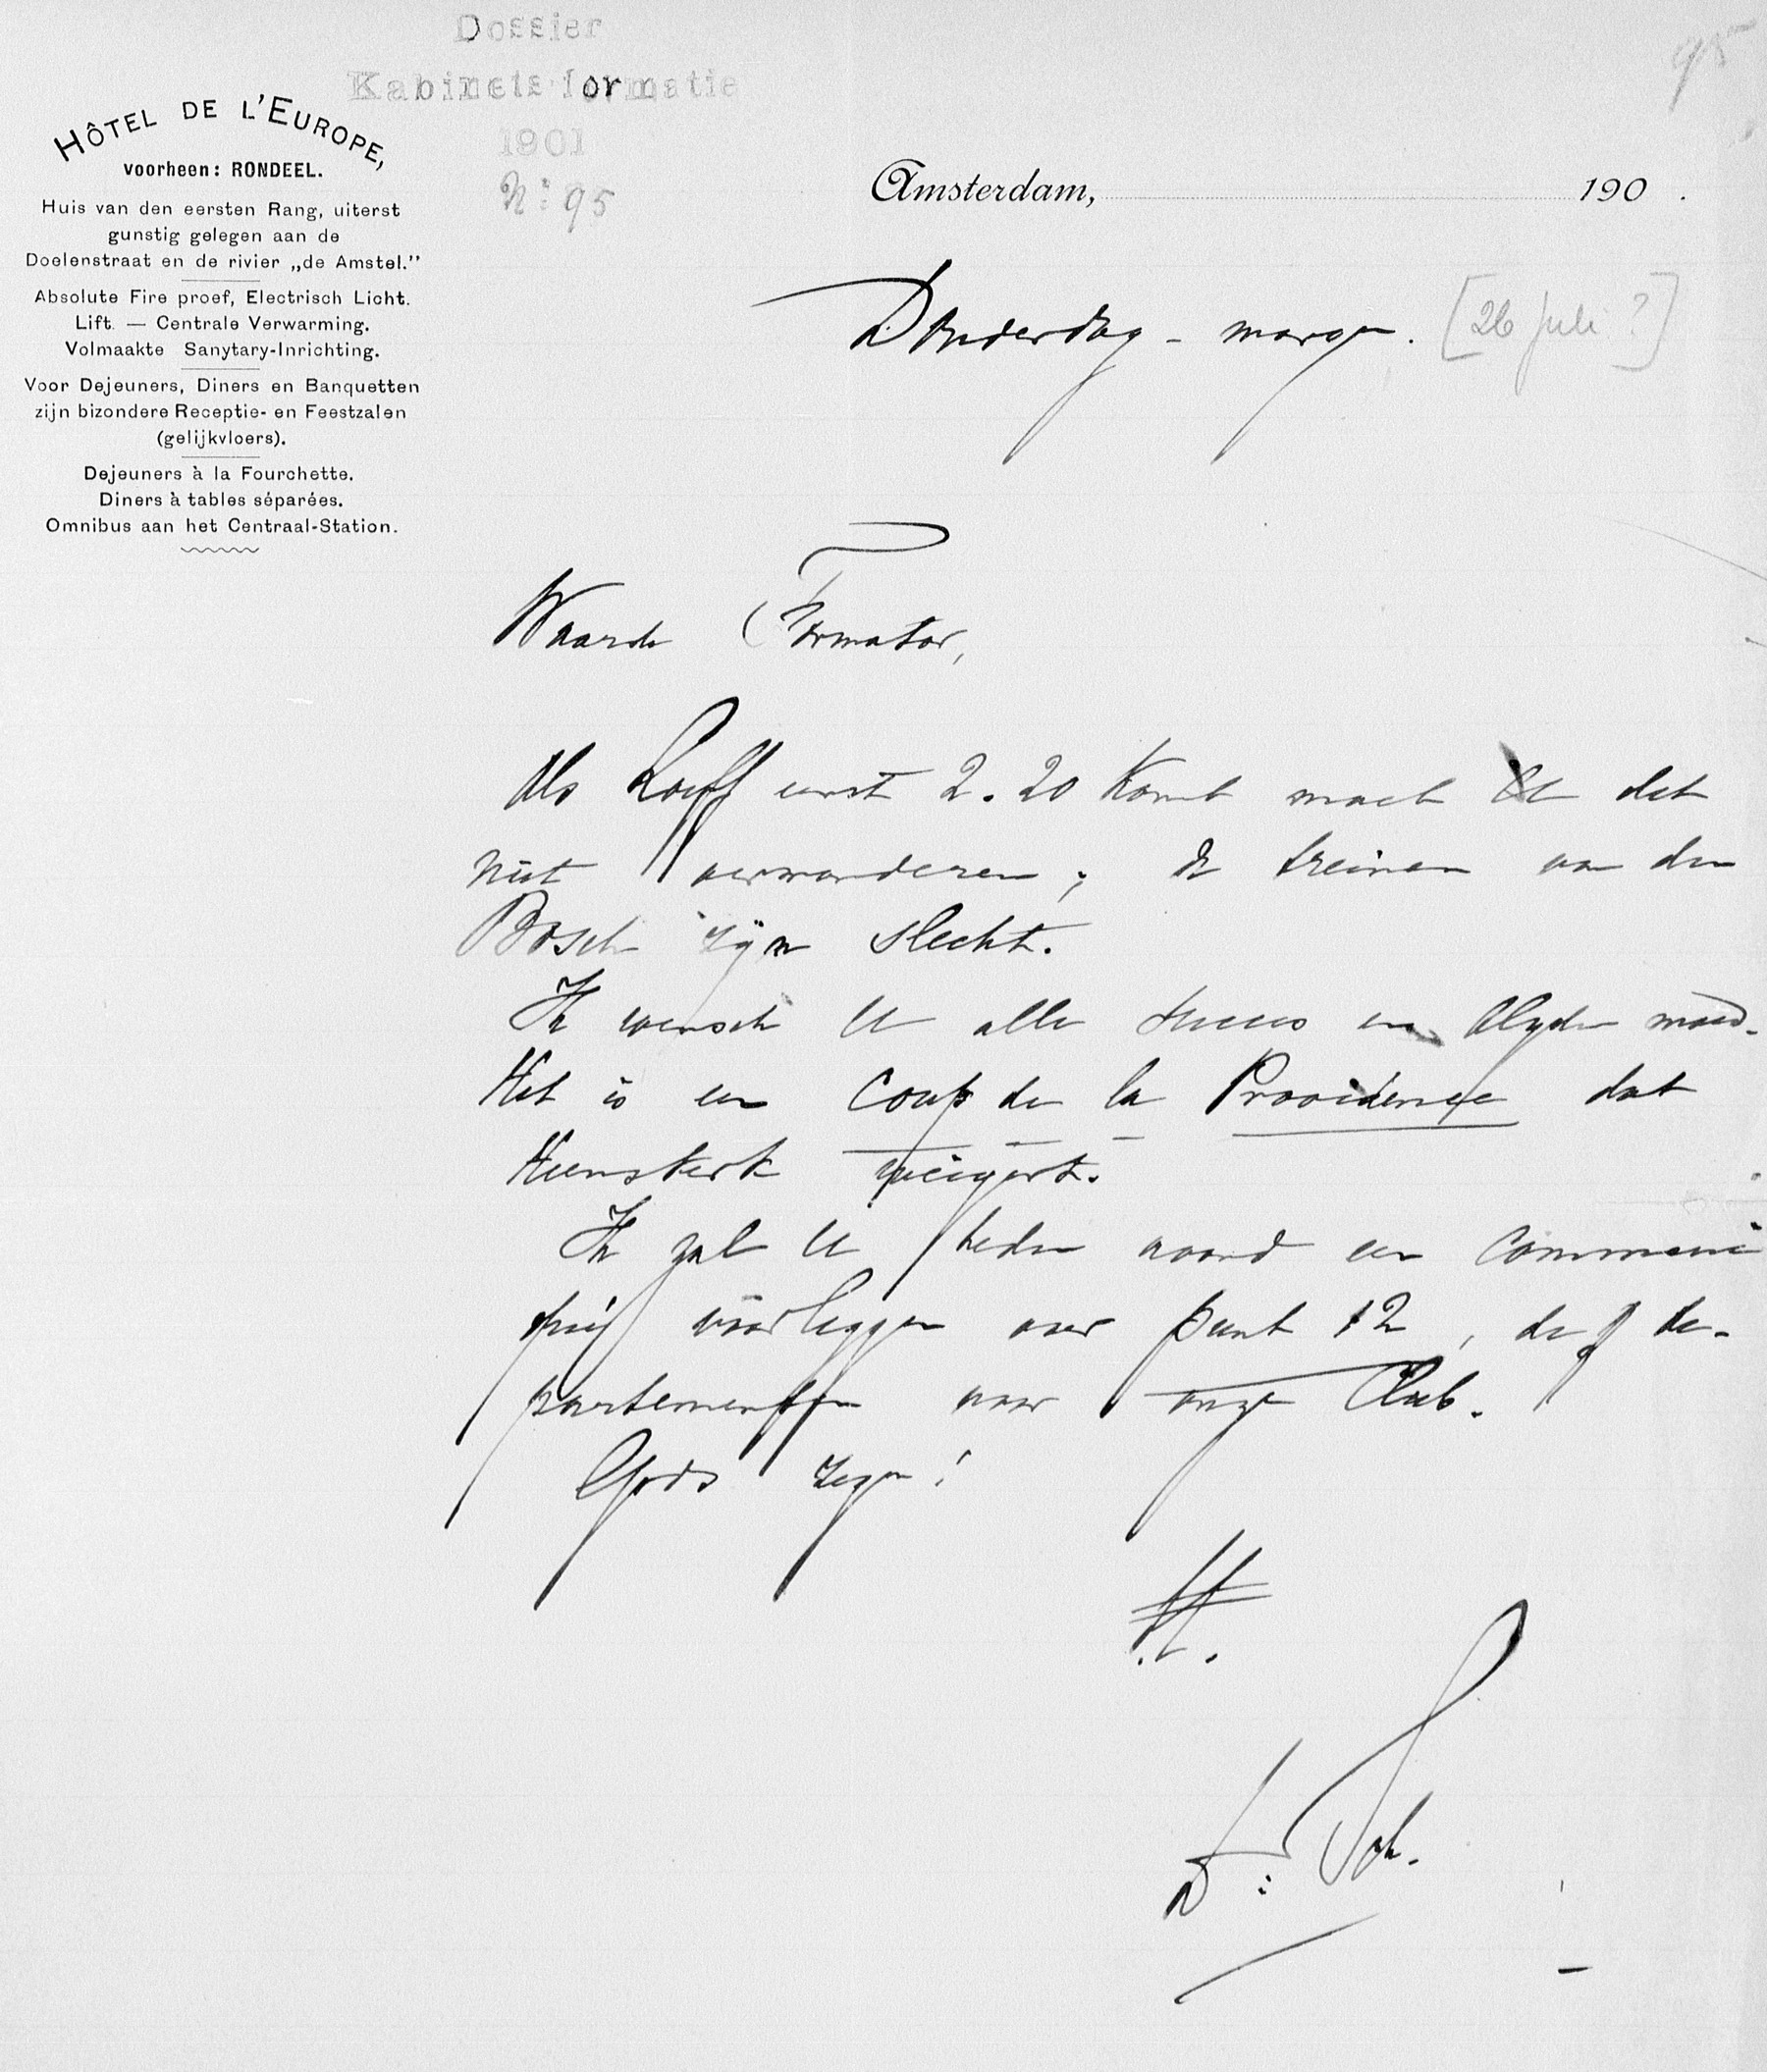 Dossier
Kabinetsformatie
1901
No: 95
95
HÔTEL DE L'EUROPE,
voorheen: RONDEEL.
Huis van den eersten Rang, uiterst
gunstig gelegen aan de
Doelenstraat en de rivier „de Amstel."
Absolute Fire proef, Electrisch Licht.
Lift. — Centrale Verwarming.
Volmaakte Sanytary-Inrichting.
Voor Dejeuners, Diners en Banquetten
zijn bizondere Receptie- en Feestzalen
(gelijkvloers).
Dejeuners à la Fourchette.
Diners à tables séparées.
Omnibus aan het Centraal-Station.
Amsterdam, 190 .
Donderdag - morgen. [26 juli ?]
Waarde Formator,
Als Loeff eerst 2.20 komt moet U dat
niet verwonderen; de treinen van den
Bosch zijn slecht.
Ik wensch U alle succes en blyden moed.
Het is een Coup de la Providence dat
Heemskerk weigert.
Ik zal U heden avond een
voorleggen over punt 12, de de-
partementen voor onze Club.
Gods zegen!
tt.
Dr: Sch.